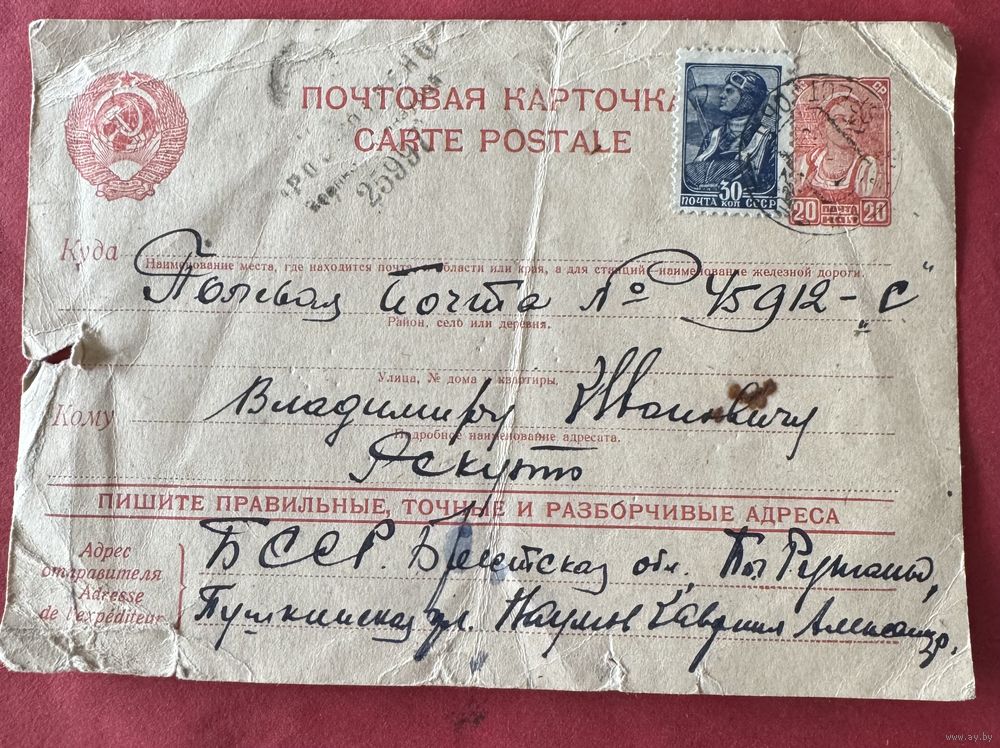 ПОЧТОВАЯ КАРТОЧКА
CARTE POSTALE
25990
30
ПОЧТА КОП СССР
20 ПОЧТА 20
Куда
Наименование места, где находится почта, области или края, а для станций—наименование железной дороги.
Полевая Почта № 45912-„С“
Район, село или деревня.
Улица, № дома и квартиры.
Кому
Владимиру Ивановичу
Подробное наименование адресата.
ПИШИТЕ ПРАВИЛЬНЫЕ, ТОЧНЫЕ И РАЗБОРЧИВЫЕ АДРЕСА
Адрес отправителя
Adresse de l'expéditeur
БССР. Брестская обл,
Пушкинская ул. Наумов Гавриил Александр.
www.ay.by